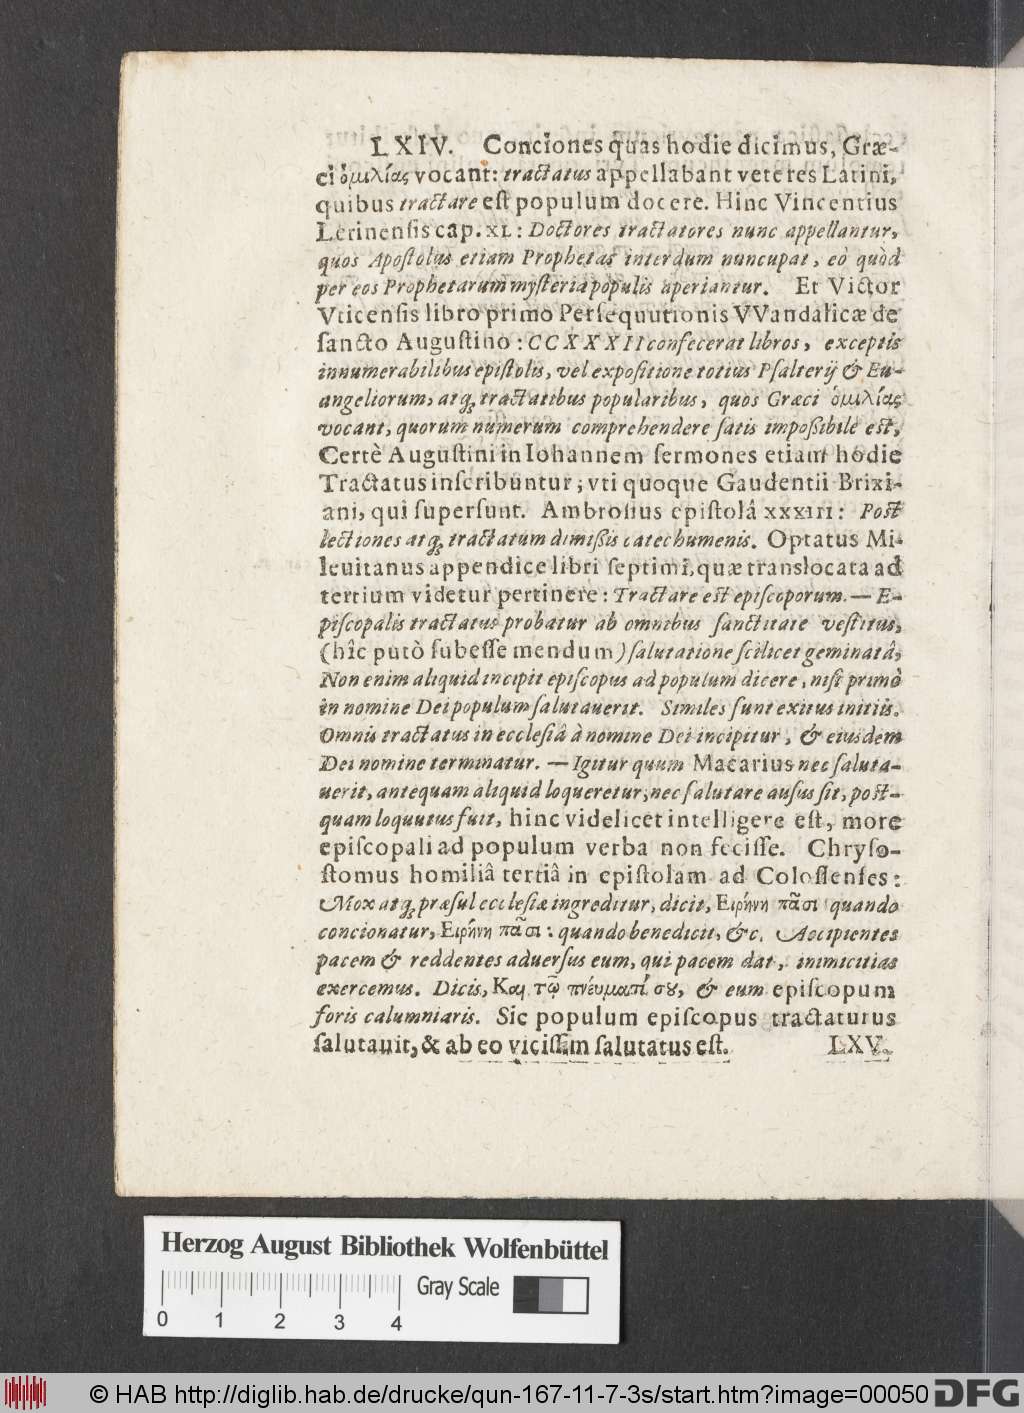 LXIV. Conciones quas hodie dicimus, Græ-
ci ὁμιλίας vocant: tractatus appellabant veteres Latini,
quibus tractare est populum docere. Hinc Vincentius
Lerinensis cap. XL: Doctores tractatores nunc appellantur,
quos Apostolus etiam Prophetas interdum nuncupat, eò quòd
per eos Prophetarum mysteria populis aperiantur. Et Victor
Vticensis libro primo Persequutionis VVandalicæ de
sancto Augustino: CCXXXII confecerat libros, exceptis
innumerabilibus epistolis, vel expositione totius Psalterij & Eu-
angeliorum, atq; tractatibus popularibus, quos Græci ὁμιλίας
vocant, quorum numerum comprehendere satis impoßibile est,
Certè Augustini in Iohannem sermones etiam hodie
Tractatus inscribuntur; vti quoque Gaudentii Brixi-
ani, qui supersunt. Ambrosius epistolâ XXXIII: Post
lectiones atq; tractatum dimißis catechumenis. Optatus Mi-
leuitanus appendice libri septimi, quæ translocata ad
tertium videtur pertinere: Tractare est episcoporum. — E-
piscopalis tractatus probatur ab omnibus sanctitate vestitus,
(hîc putò subesse mendum) salutatione scilicet geminatâ,
Non enim aliquid incipit episcopus ad populum dicere, nisi primò
in nomine Dei populum salutauerit. Similes sunt exitus initiis.
Omnis tractatus in ecclesiâ à nomine Dei incipitur, & eiusdem
Dei nomine terminatur. — Igitur quum Macarius nec saluta-
uerit, antequam aliquid loqueretur, nec salutare ausus sit, post-
quam loquutus fuit, hinc videlicet intelligere est, more
episcopali ad populum verba non fecisse. Chryso-
stomus homiliâ tertiâ in epistolam ad Colossenses:
Mox atq; præsul ecclesiæ ingreditur, dicit, Ειρήνη πᾶσι quando
concionatur, Ειρήνη πᾶσι: quando benedicit, &c. Accipientes
pacem & reddentes aduersus eum, qui pacem dat, inimicitias
exercemus. Dicis, Καὶ τῷ πνέυματί σου, & eum episcopum
foris calumniaris. Sic populum episcopus tractaturus
salutauit, & ab eo vicissim salutatus est. LXV.
Herzog August Bibliothek Wolfenbüttel
Gray Scale
0 1 2 3 4
© HAB http://diglib.hab.de/drucke/qun-167-11-7-3s/start.htm?image=00050 DFG